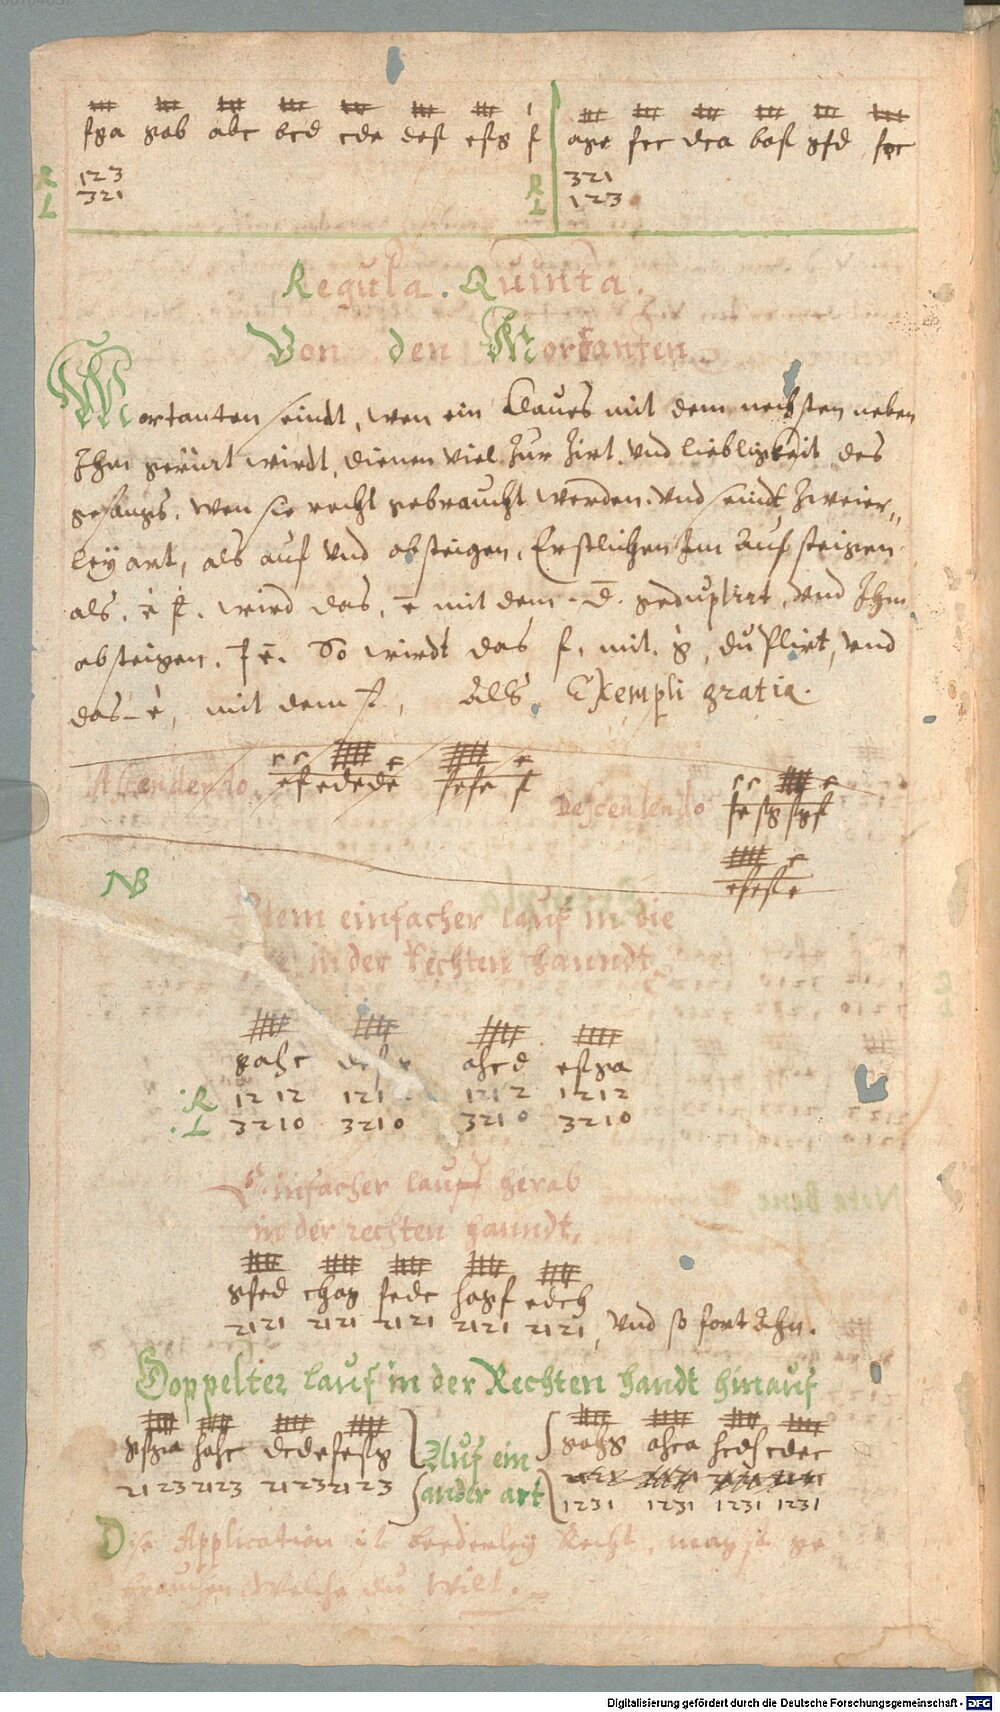 fga gab abc bcd cde def efg f
age fec dca baf gfd fec
R 123
L 321
R 321
L 123
Regula. Quinta.
Von den Mordanten.
Mortanten seindt, wen ein Claves mit dem nechsten neben
Ihm gerürt wirdt, dienen viel zur Zirt, und Liebligkeit des
gesangs, wen sie recht gebraucht werden, und seindt zweier„
ley art, als auf und absteigen, Erstlichen Im Auf steigen
als. e f. wird das, e mit dem. d. geduplirt, und Ihm
absteigen. f e. So wirdt das f, mit. g, duplirt, und
das e, mit dem f, Als. Exempli gratia.
Ascendendo efedede fefe f
Descendendo fe fg fgf
efefe
NB
Item einfacher lauf in die
in der Rechten handt
gahc ahcd efga
R 1212 121 1212 1212
L 3210 3210 3210 3210
Einfacher lauf herab
in der rechten handt,
gfed chag fedc hagf edch
2121 2121 2121 2121 2121, und so fort Ahn.
Doppelter lauf in der Rechten handt hinauf
hahc dcdefefg
2123 2123 2123 2123
Auf ein
ander art
gahg ahca hcdh cdec
1231 1231 1231 1231
Dise Application ist beederley Recht, magst ge
brauchen Welche du wilt.
Digitalisierung gefördert durch die Deutsche Forschungsgemeinschaft - DFG